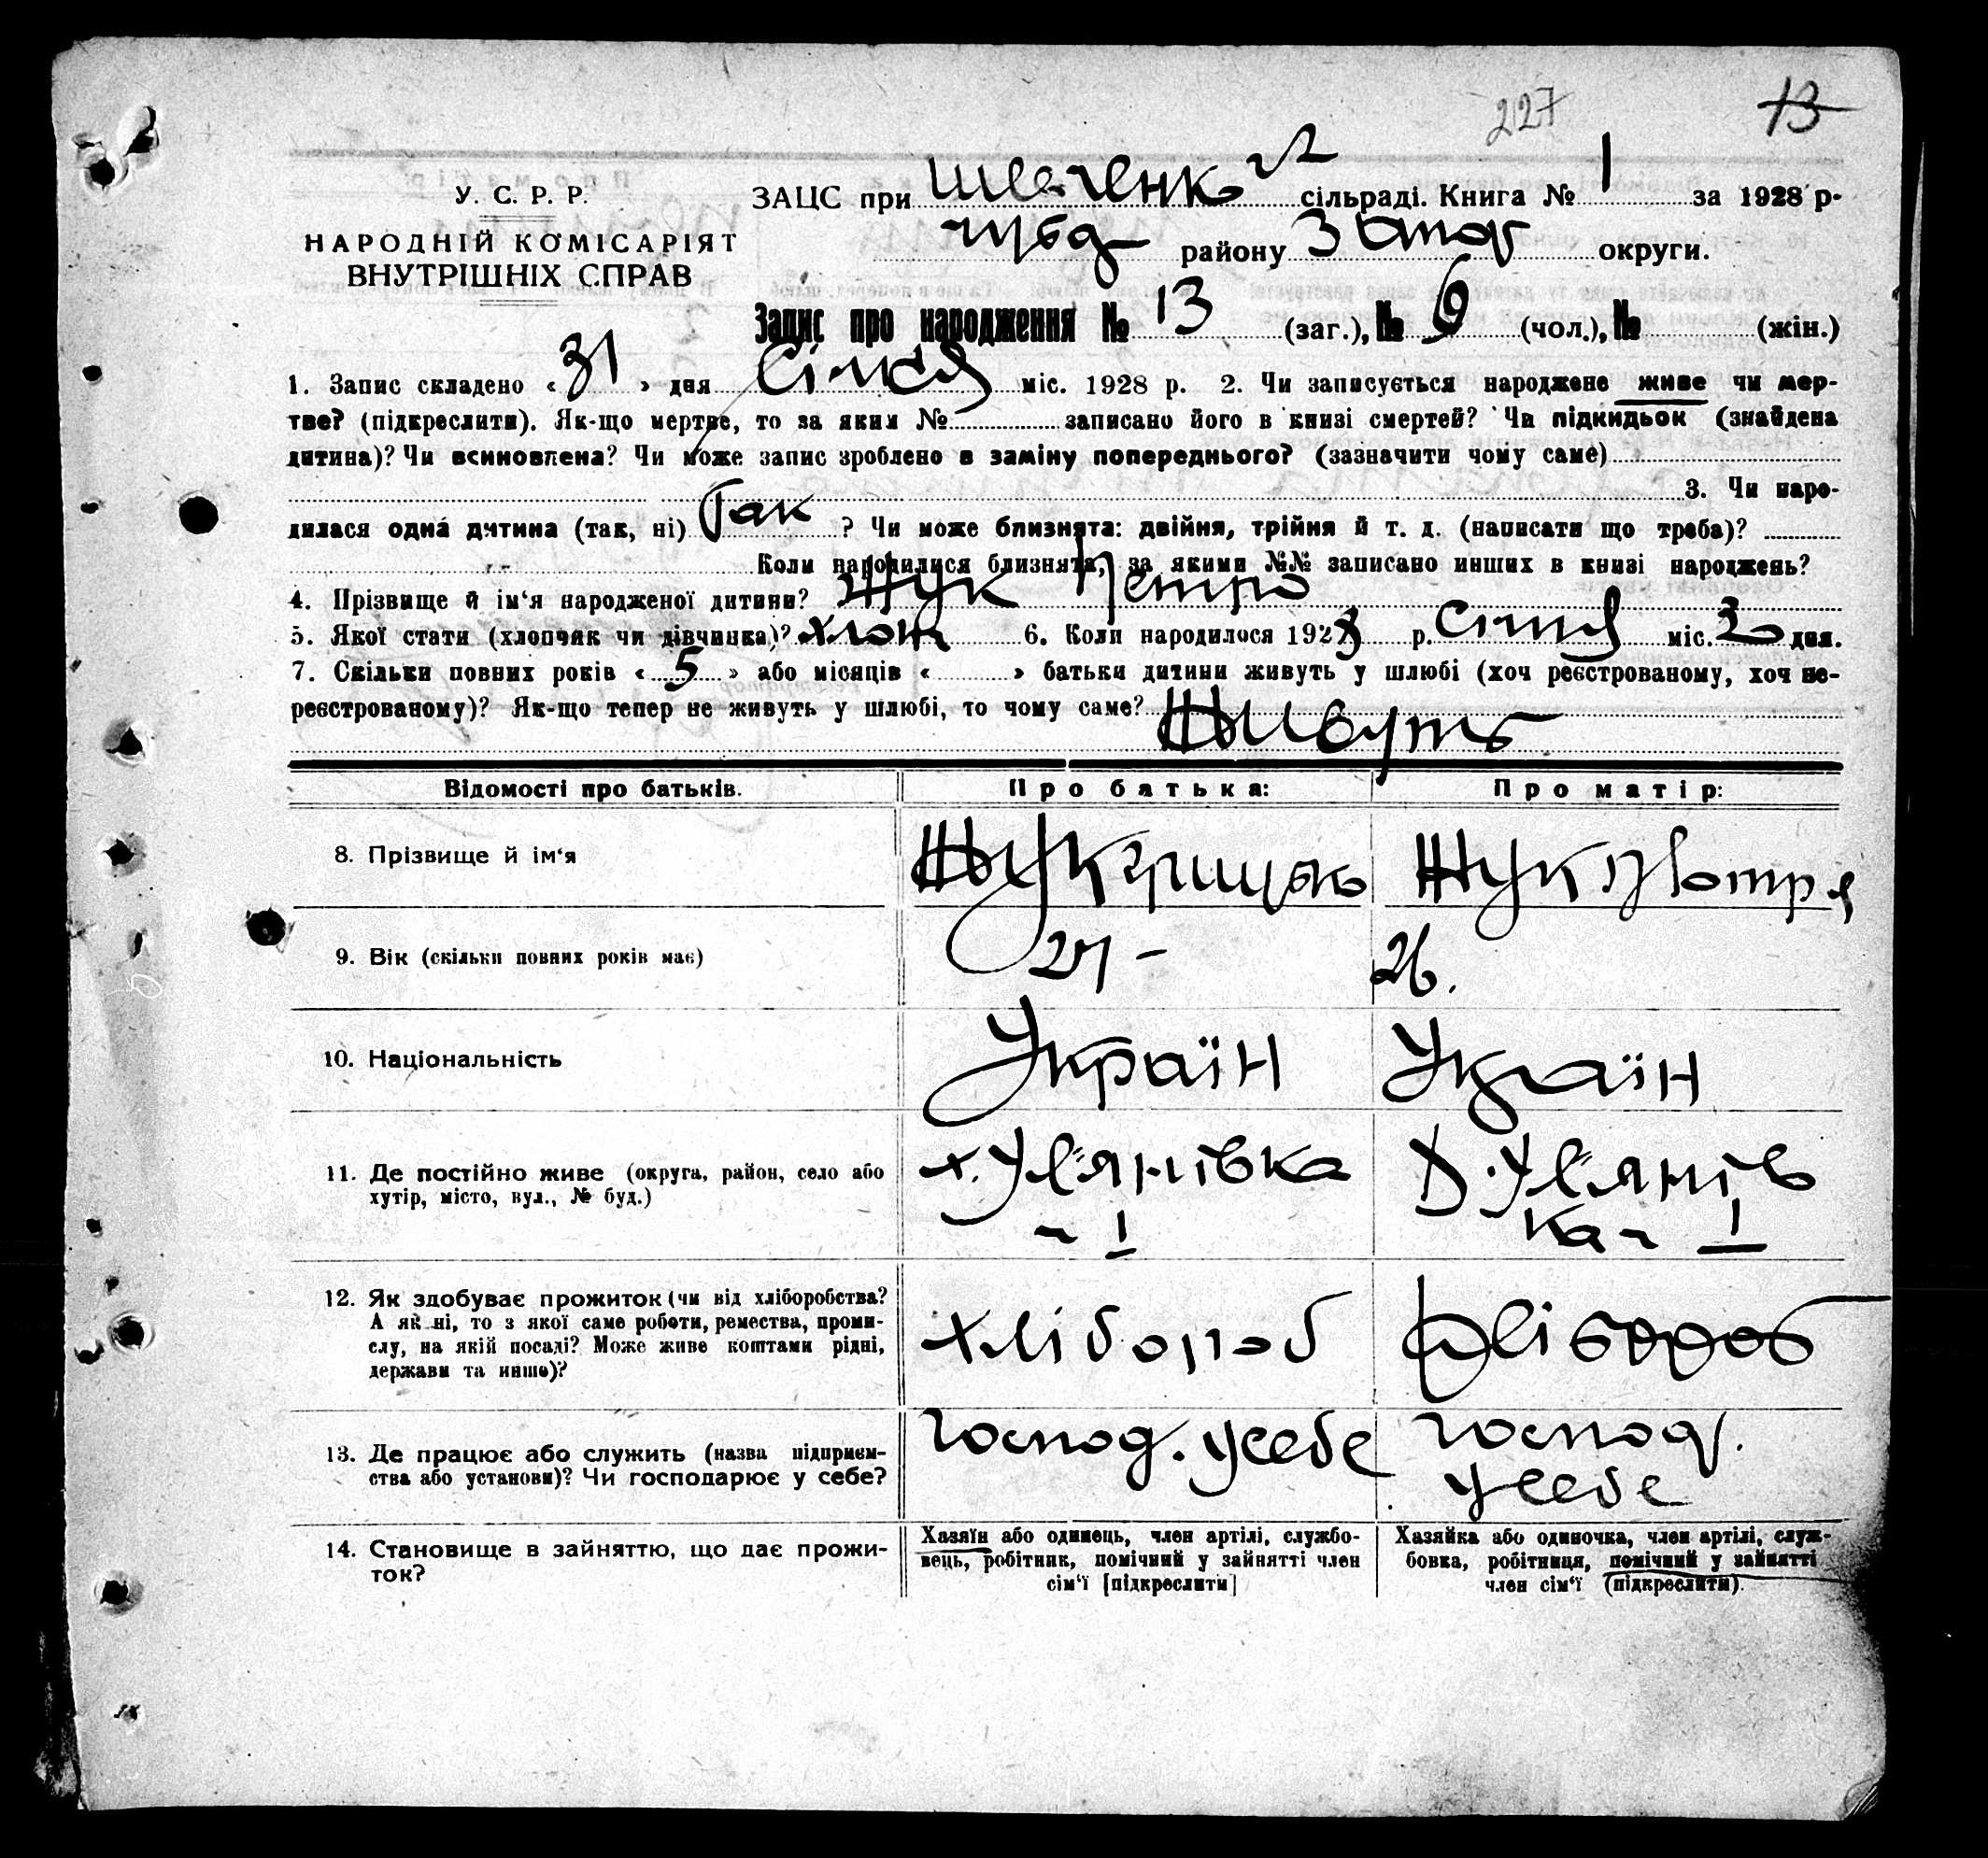 227 13
У. С. Р. Р.
НАРОДНІЙ КОМІСАРІЯТ
ВНУТРІШНІХ СПРАВ
ЗАЦС при Шевченков сільраді. Книга № 1 за 1928 р.
району Запор округи.
Запис про народження № 13 (заг.), № 6 (чол.), № (жін.)
1. Запис складено « 31 » дня Січня міс. 1928 р. 2. Чи записується народжене живе чи мер-
тве? (підкреслити). Як-що мертве, то за яким № записано його в книзі смертей? Чи підкидьок (знайдена
дитина)? Чи всиновлена? Чи може запис зроблено в заміну попереднього? (зазначити чому саме)
3. Чи наро-
дилася одна дитина (так, ні) Так ? Чи може близнята: двійня, трійня й т. д. (написати що треба)?
Коли народилися близнята, за якими №№ записано инших в книзі народжень?
4. Прізвище й ім'я народженої дитини? Жук Петро
5. Якої стати (хлопчик чи дівчинка)? хлоп 6. Коли народилося 1928 р. Січня міс. 3 дня.
7. Скільки повних років « 5 » або місяців « » батьки дитини живуть у шлюбі (хоч реєстрованому, хоч не-
реєстрованому)? Як-що тепер не живуть у шлюбі, то чому саме? Живуть
Відомості про батьків. Про батька: Про матір:
8. Прізвище й ім'я Жук Грицько Жук
9. Вік (скільки повних років має) 27 - 26.
10. Національність Україн Україн
11. Де постійно живе (округа, район, село або
хутір, місто, вул., № буд.) х. Ул'янівка Х. Ул'янів
~ I ка ~ I
12. Як здобуває прожиток (чи від хліборобства?
А як ні, то з якої саме роботи, ремества, проми-
слу, на якій посаді? Може живе коштами рідні,
держави та инше)? хлібороб хлібороб
13. Де працює або служить (назва підприєм-
ства або установи)? Чи господарює у себе? господ. у себе господ.
у себе
14. Становище в зайняттю, що дає прожи-
ток?
Хазяїн або одинець, член артілі, службо-
вець, робітник, помічний у зайнятті член
сім'ї [підкреслити]
Хазяйка або одиночка, член артілі, служ-
бовка, робітниця, помічний у зайнятті
член сім'ї (підкреслити).